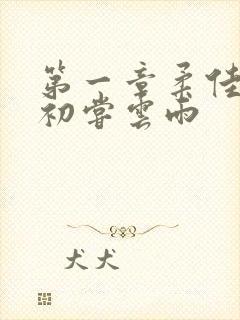 第一章柔佳
初嘗雲雨
犬犬